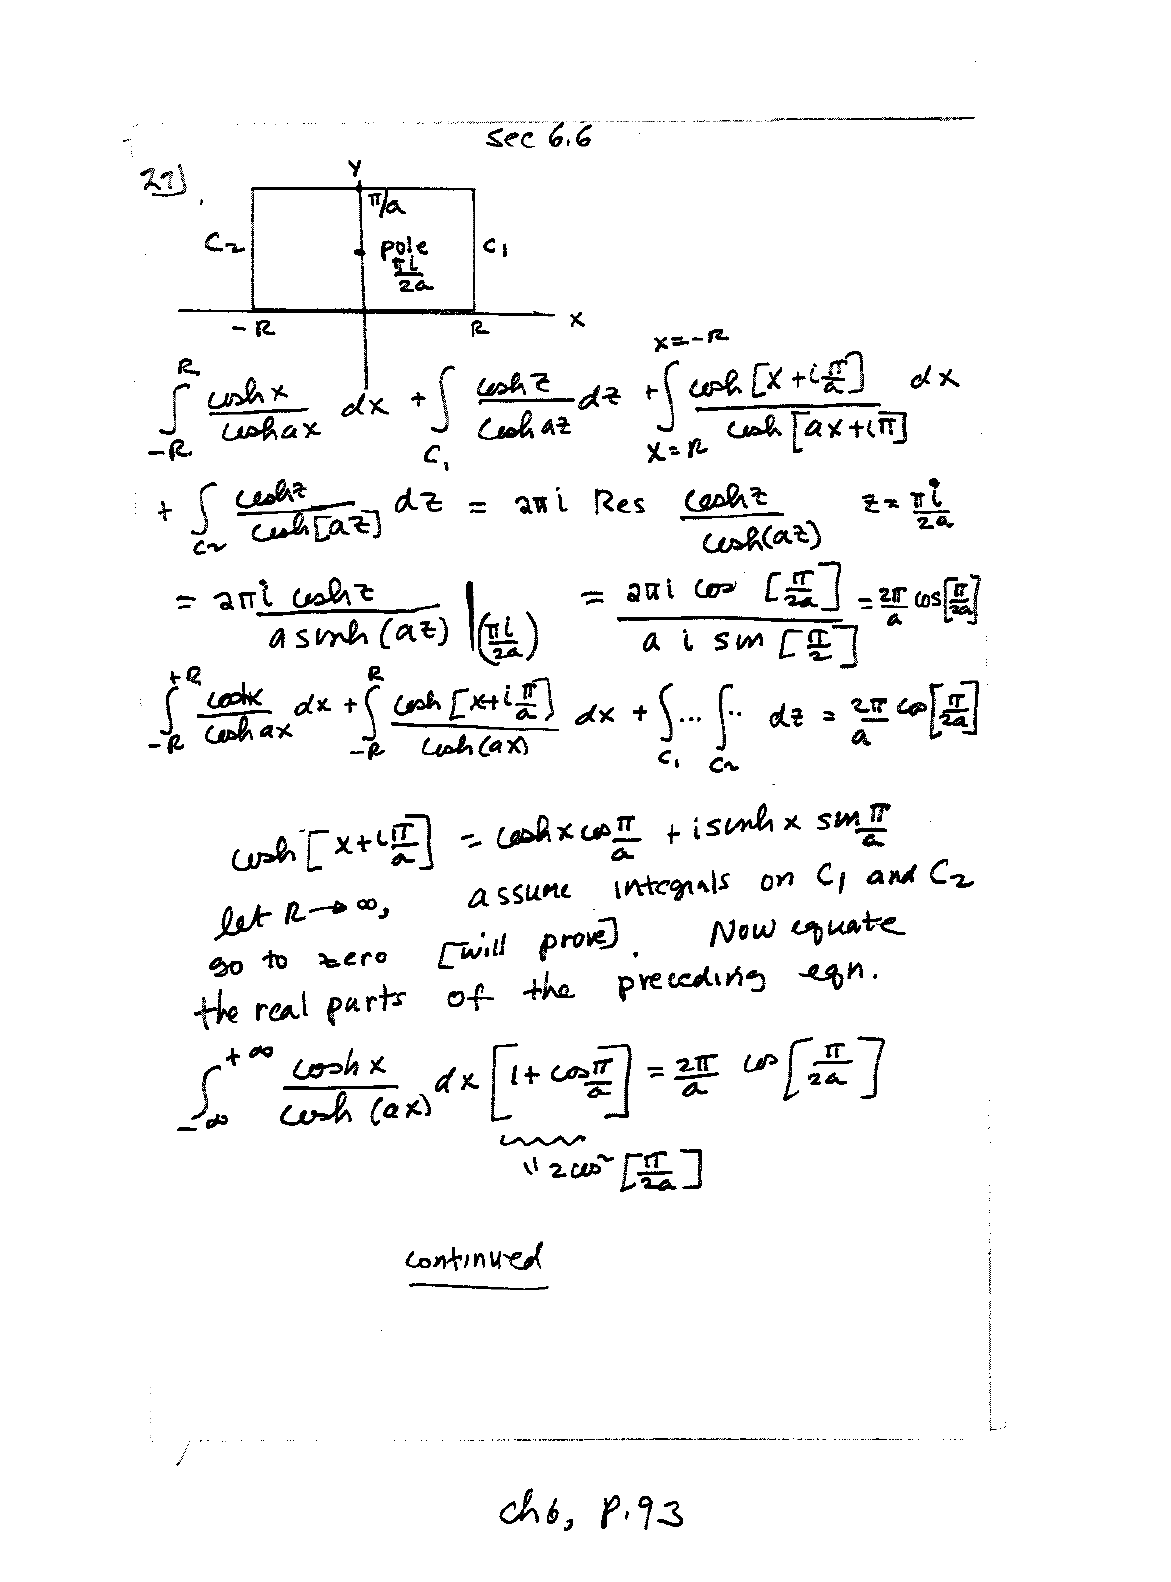 sec 6.6
27)
Y
π/a
C₂ pole C₁
πi/2a
-R R x
∫_{-R}^{R} cosh x / cosh ax dx + ∫_{C₁} cosh z / cosh az dz + ∫_{x=R}^{x=-R} cosh [x + i π/a] / cosh [ax + iπ] dx
+ ∫_{C₂} cosh z / cosh [az] dz = 2πi Res cosh z / cosh(az) z = πi/2a
= 2πi cosh z / a sinh (az) |(πi/2a) = 2πi cos [π/2a] / a i sin [π/2] = 2π/a cos [π/2a]
∫_{-R}^{+R} cosh x / cosh ax dx + ∫_{-R}^{R} cosh [x + i π/a] / cosh (ax) dx + ∫_{C₁} ... ∫_{C₂} .. dz = 2π/a cos [π/2a]
cosh [x + i π/a] = cosh x cos π/a + i sinh x sin π/a
let R → ∞, assume integrals on C₁ and C₂
go to zero [will prove]. Now equate
the real parts of the preceding eqn.
∫_{-∞}^{+∞} cosh x / cosh (ax) dx [1 + cos π/a] = 2π/a cos [π/2a]
" 2 cos² [π/2a]
continued
ch 6, p. 93